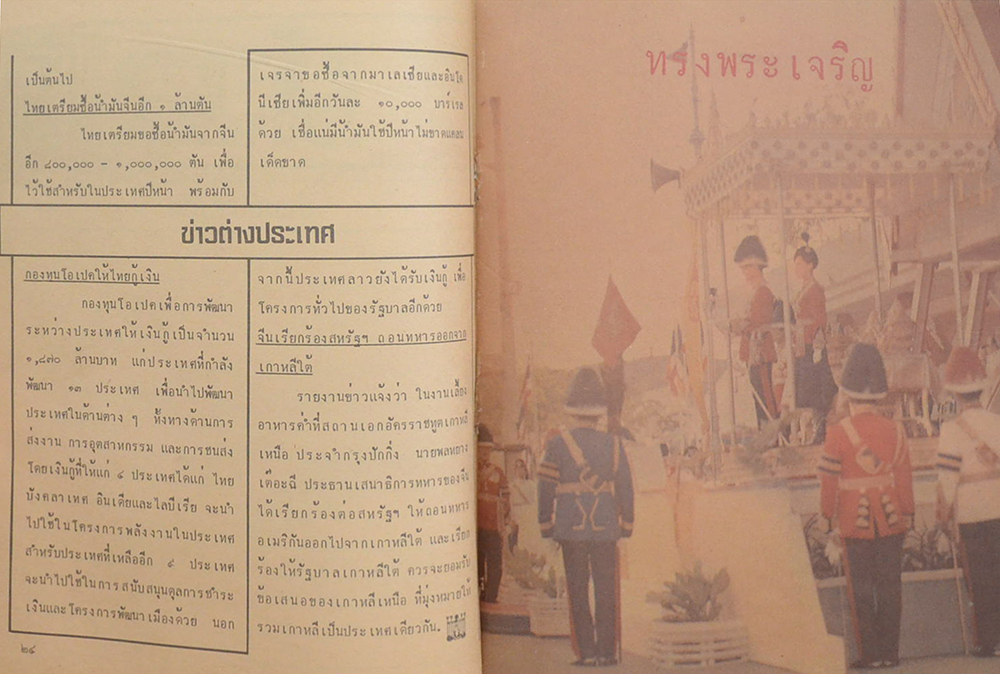 เป็นต้นไป
ไทยเตรียมซื้อน้ำมันจีนอีก ๑ ล้านตัน
ไทยเตรียมขอซื้อน้ำมันจากจีน
อีก ๘๐๐,๐๐๐ - ๑,๐๐๐,๐๐๐ ตัน เพื่อ
ไว้ใช้สำหรับในประเทศปีหน้า พร้อมกับ
เจรจาขอซื้อจากมาเลเซียและอินโด
นีเซียเพิ่มอีกวันละ ๑๐,๐๐๐ บาร์เรล
ด้วย เชื่อแน่มีน้ำมันใช้ปีหน้าไม่ขาดแคลน
เด็ดขาด
ข่าวต่างประเทศ
กองทุนโอเปคให้ไทยกู้เงิน
กองทุนโอเปคเพื่อการพัฒนา
ระหว่างประเทศให้เงินกู้เป็นจำนวน
๑,๘๗๐ ล้านบาท แก่ประเทศที่กำลัง
พัฒนา ๑๓ ประเทศ เพื่อนำไปพัฒนา
ประเทศในด้านต่าง ๆ ทั้งทางด้านการ
ส่งงาน การอุตสาหกรรม และการขนส่ง
โดยเงินกู้ที่ให้แก่ ๔ ประเทศได้แก่ ไทย
บังคลาเทศ อินเดียและไลบีเรีย จะนำ
ไปใช้ในโครงการพลังงานในประเทศ
สำหรับประเทศที่เหลืออีก ๙ ประเทศ
จะนำไปใช้ในการสนับสนุนดุลการชำระ
เงินและโครงการพัฒนาเมืองด้วย นอก
จากนี้ประเทศลาวยังได้รับเงินกู้ เพื่อ
โครงการทั่วไปของรัฐบาลอีกด้วย
จีนเรียกร้องสหรัฐฯ ถอนทหารออกจาก
เกาหลีใต้
รายงานข่าวแจ้งว่า ในงานเลี้ยง
อาหารค่ำที่สถานเอกอัครราชทูตเกาหลี
เหนือ ประจำกรุงปักกิ่ง นายพลหยาง
เต๋อฉี ประธานเสนาธิการทหารของจีน
ได้เรียกร้องต่อสหรัฐฯ ให้ถอนทหาร
อเมริกันออกไปจากเกาหลีใต้ และเรียก
ร้องให้รัฐบาลเกาหลีใต้ ควรจะยอมรับ
ข้อเสนอของเกาหลีเหนือ ที่มุ่งหมายให้
รวมเกาหลีเป็นประเทศเดียวกัน.
๒๔
ทรงพระเจริญ